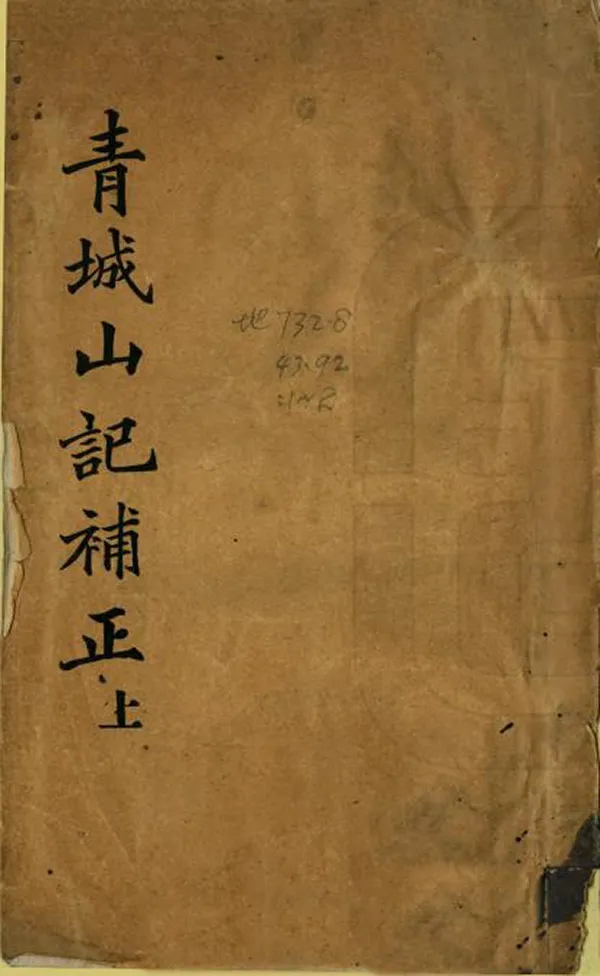 青城山記補正上
地732.8
43.92